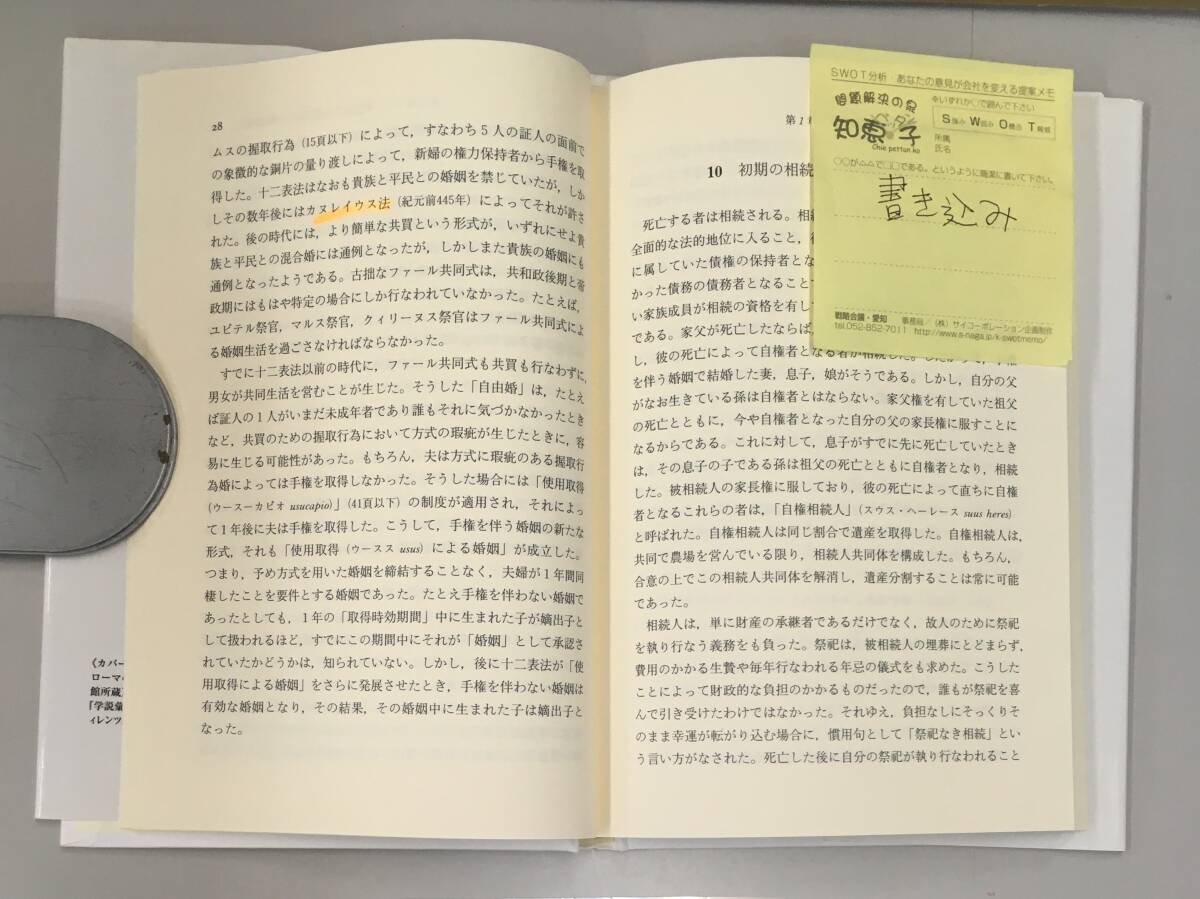 28
ムスの握取行為（15頁以下）によって，すなわち5人の証人の面前で
の象徴的な銅片の量り渡しによって，新婦の権力保持者から手権を取
得した。十二表法はなおも貴族と平民との婚姻を禁じていたが，しか
しその数年後にはカヌレイウス法（紀元前445年）によってそれが許さ
れた。後の時代には，より簡単な共買という形式が，いずれにせよ貴
族と平民との混合婚には通例となったが，しかしまた貴族の婚姻にも
通例となったようである。古拙なファール共同式は，共和政後期と帝
政期にはもはや特定の場合にしか行なわれていなかった。たとえば，
ユピテル祭官，マルス祭官，クィリーヌス祭官はファール共同式によ
る婚姻生活を過ごさなければならなかった。
すでに十二表法以前の時代に，ファール共同式も共買も行なわずに，
男女が共同生活を営むことが生じた。そうした「自由婚」は，たとえ
ば証人の1人がいまだ未成年者であり誰もそれに気づかなかったとき
など，共買のための握取行為において方式の瑕疵が生じたときに，容
易に生じる可能性があった。もちろん，夫は方式に瑕疵のある握取行
為婚によっては手権を取得しなかった。そうした場合には「使用取得
（ウースーカピオ usucapio）」（41頁以下）の制度が適用され，それによっ
て1年後に夫は手権を取得した。こうして，手権を伴う婚姻の新たな
形式，それも「使用取得（ウースス usus）による婚姻」が成立した。
つまり，予め方式を用いた婚姻を締結することなく，夫婦が1年間同
棲したことを要件とする婚姻であった。たとえ手権を伴わない婚姻で
あったとしても，1年の「取得時効期間」中に生まれた子が嫡出子と
して扱われるほど，すでにこの期間中にそれが「婚姻」として承認さ
れていたかどうかは，知られていない。しかし，後に十二表法が「使
用取得による婚姻」をさらに発展させたとき，手権を伴わない婚姻は
有効な婚姻となり，その結果，その婚姻中に生まれた子は嫡出子と
なった。
《カバー
ローマの
館所蔵
『学説彙
ィレンツ
第1
10 初期の相続
死亡する者は相続される。相
全面的な法的地位に入ること，
に属していた債権の保持者とな
かった債務の債務者となること
い家族成員が相続の資格を有して
である。家父が死亡したならば，
し，彼の死亡によって自権者となる者が相続した。
を伴う婚姻で結婚した妻，息子，娘がそうである。しかし，自分の父
がなお生きている孫は自権者とはならない。家父権を有していた祖父
の死亡とともに，今や自権者となった自分の父の家長権に服すことに
なるからである。これに対して，息子がすでに先に死亡していたとき
は，その息子の子である孫は祖父の死亡とともに自権者となり，相続
した。被相続人の家長権に服しており，彼の死亡によって直ちに自権
者となるこれらの者は，「自権相続人」（スウス・ヘーレース suus heres）
と呼ばれた。自権相続人は同じ割合で遺産を取得した。自権相続人は，
共同で農場を営んでいる限り，相続人共同体を構成した。もちろん，
合意の上でこの相続人共同体を解消し，遺産分割することは常に可能
であった。
相続人は，単に財産の承継者であるだけでなく，故人のために祭祀
を執り行なう義務をも負った。祭祀は，被相続人の埋葬にとどまらず，
費用のかかる生贄や毎年行なわれる年忌の儀式をも求めた。こうした
ことによって財政的な負担のかかるものだったので，誰もが祭祀を喜
んで引き受けたわけではなかった。それゆえ，負担なしにそっくりそ
のまま幸運が転がり込む場合に，慣用句として「祭祀なき相続」とい
う言い方がなされた。死亡した後に自分の祭祀が執り行なわれること
SWOT分析 あなたの意見が会社を変える提案メモ
問題解決の泉
知恵ペッタン子
Chie pettan ko
※いずれか○で囲んで下さい
S強み W弱み O機会 T脅威
所属
氏名
○○が△△で□□である。というように簡潔に書いて下さい。
書き込み
戦略会議・愛知 事務局／（株）サイコーポレーション企画制作
tel.052-852-7011 http://www.s-naga.jp/k-swotmemo/